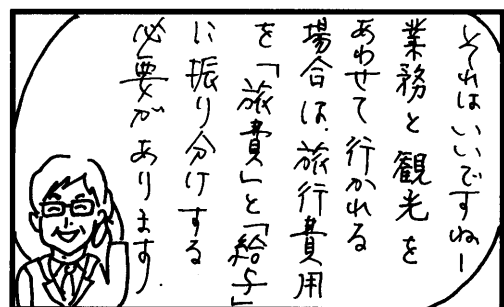 それはいいですねー
業務と観光を
あわせて行かれる
場合は、旅行費用
を「旅費」と「給与」
に振り分けする
必要があります.